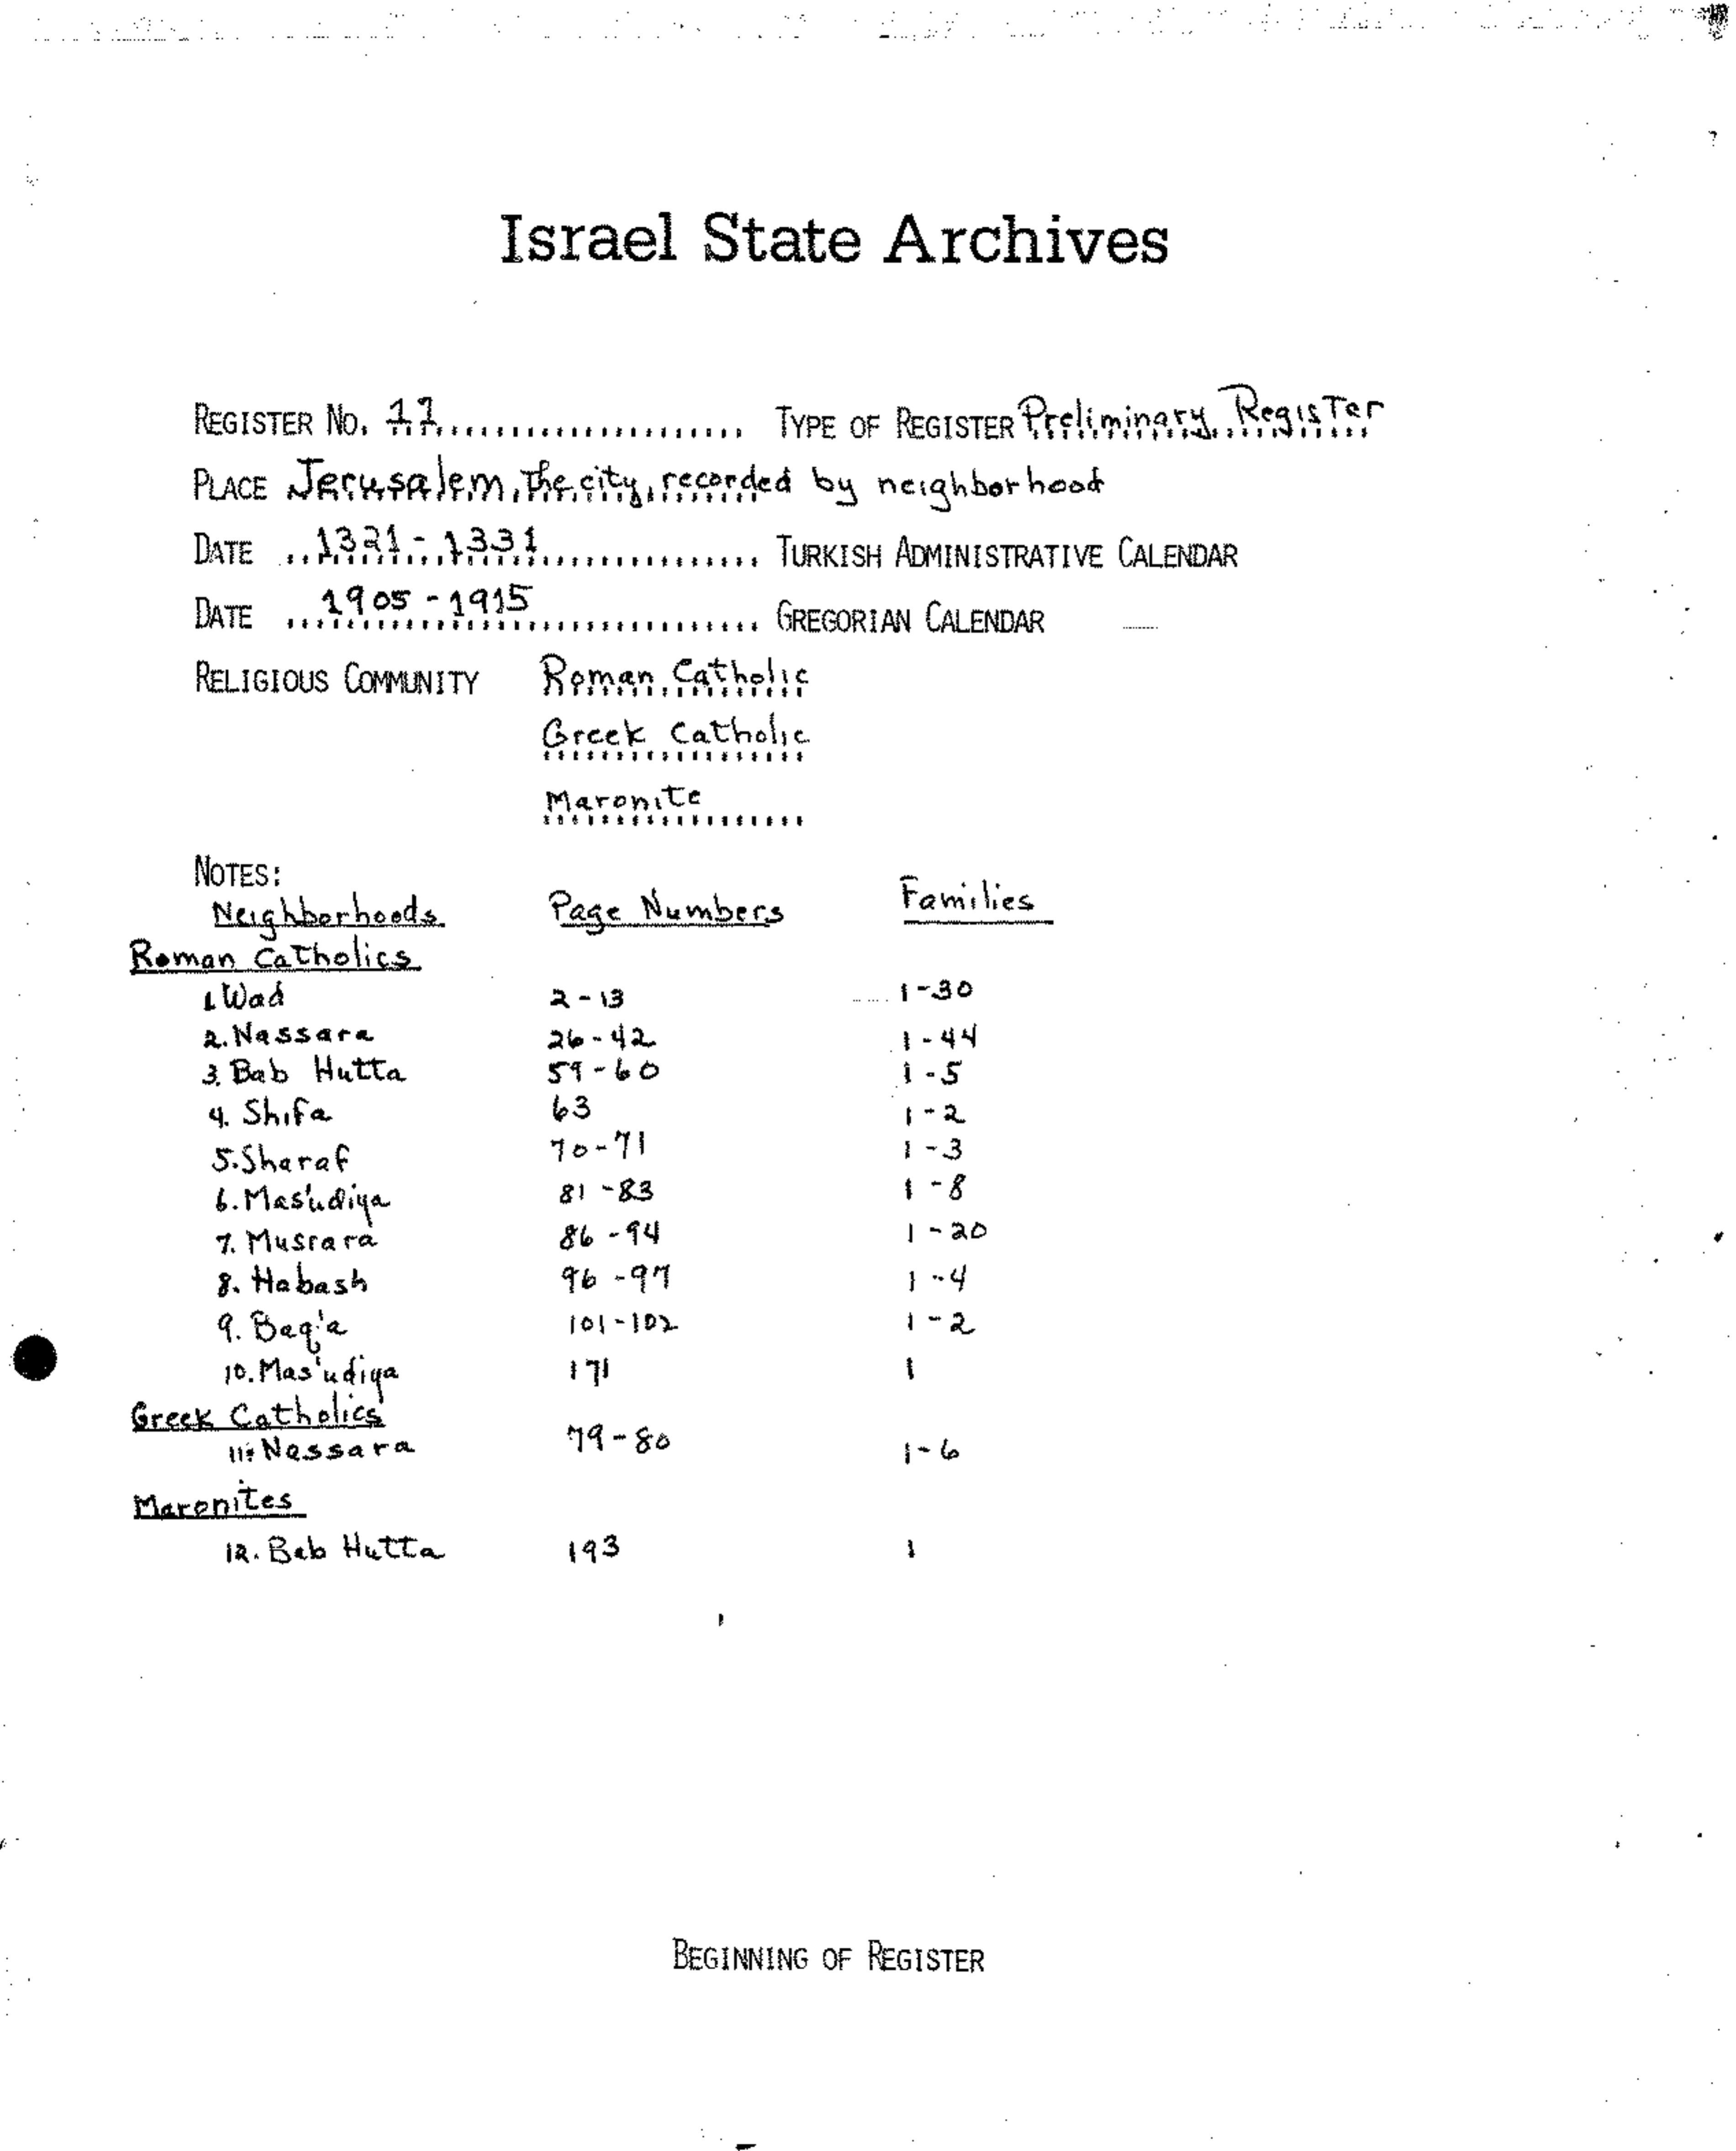 Israel State Archives
REGISTER NO. 17 TYPE OF REGISTER Preliminary Register
PLACE Jerusalem, The city, recorded by neighborhood
DATE 1321 - 1331 TURKISH ADMINISTRATIVE CALENDAR
DATE 1905 - 1915 GREGORIAN CALENDAR
RELIGIOUS COMMUNITY Roman Catholic
Greek Catholic
Maronite
NOTES:
Neighborhoods Page Numbers Families
Roman Catholics
1. Wad 2 - 13 1 - 30
2. Nassara 26 - 42 1 - 44
3. Bab Hutta 59 - 60 1 - 5
4. Shifa 63 1 - 2
5. Sharaf 70 - 71 1 - 3
6. Mas'udiya 81 - 83 1 - 8
7. Musrara 86 - 94 1 - 20
8. Habash 96 - 97 1 - 4
9. Baq'a 101 - 102 1 - 2
10. Mas'udiya 171 1
Greek Catholics
11. Nassara 79 - 80 1 - 6
Maronites
12. Bab Hutta 193 1
BEGINNING OF REGISTER